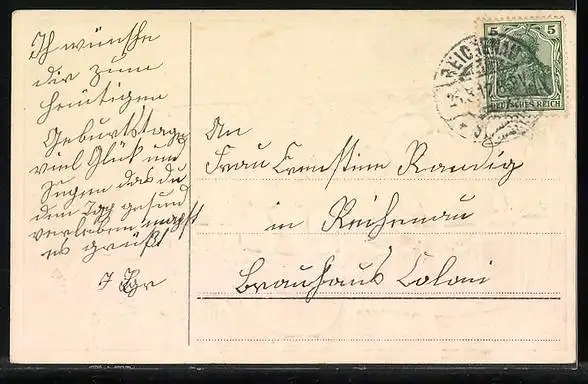 Ich wünsche
dir zum
heutigen
Geburtstage
viel Glück und
Segen das du
den Tag gesund
verleben magst
es grüßt
An
Frau Ernstine
in Reichenau
Brauhaus
REICHENAU
5 5
DEUTSCHES REICH